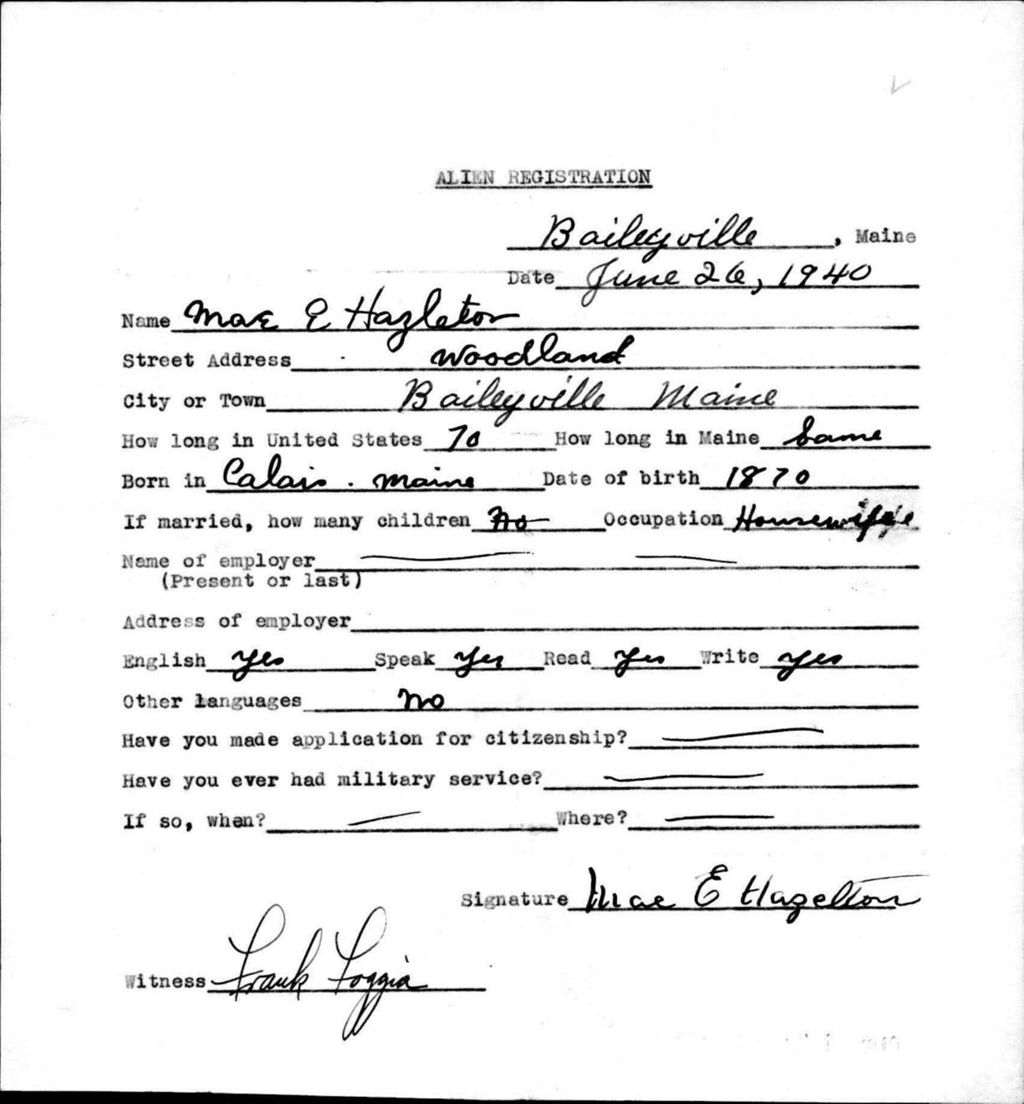 ALIEN REGISTRATION
Baileyville, Maine
Date June 26, 1940
Name Mae E Hazleton
Street Address Woodland
City or Town Baileyville Maine
How long in United States 70 How long in Maine Same
Born in Calais. Maine Date of birth 1870
If married, how many children No Occupation Housewife
Name of employer
(Present or last)
Address of employer
English Yes Speak Yes Read Yes Write Yes
Other languages No
Have you made application for citizenship?
Have you ever had military service?
If so, when? Where?
Signature Mae E Hazelton
Witness Frank Foggia